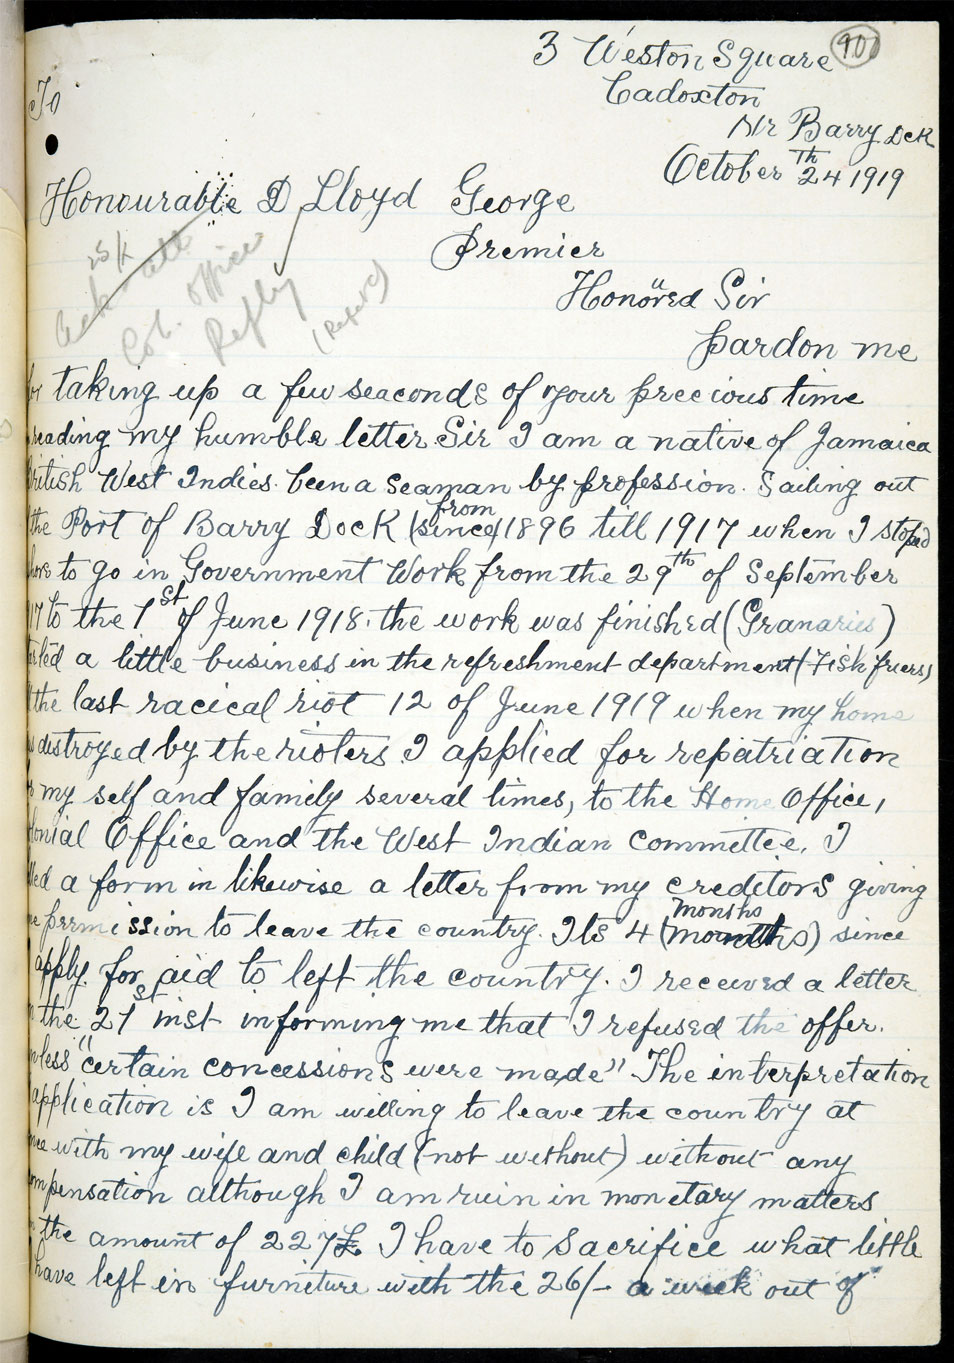 3 Weston Square
901
Cadoxton
To
Nr Barry Dck
October 24Th 1919
Honourable D Lloyd George
Premier
25/x
Ack
Col. Office
Reply
(Refers)
Honored Sir
pardon me
for taking up a few seaconds of your precious time
reading my humble letter. Sir I am a native of Jamaica
British West Indies. been a Seaman by profession. Sailing out
the Port of Barry Dock (since) from 1896 till 1917 when I stoped
to go in Government Work from the 29th of September
17 to the 1st of June 1918. the work was finished (Granaries)
a little business in the refreshment department (Fish friers)
the last racical riot 12 of June 1919 when my home
destroyed by the rioters. I applied for repatriation
my self and family several times, to the Home Office,
Colonial Office and the West Indian Committee. I
a form in likewise a letter from my creditors giving
me permission to leave the country. Its 4 (months) months since
apply. for aid to left the country. I received a letter
the 21st inst informing me that I refused the offer.
unless "certain concessions were made" The interpretation
application is I am willing to leave the country at
once with my wife and child (not without) without any
compensation although I am ruin in monetary matters
the amount of 227£. I have to Sacrifice what little
have left in furniture with the 26/- a week out of